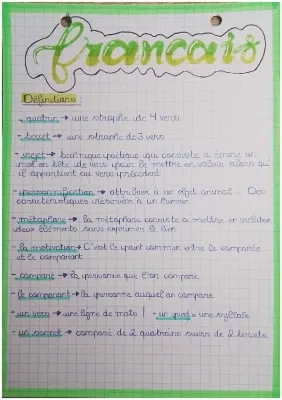 français
Définitions
- quatrin → une strophe de 4 vers
- tercet → une strophe de 3 vers
- rejet → technique poétique qui consiste à écrire un
mot en tête de vers pour le mettre en valeur alors qu'il
appartient au vers précédent
- personnification → attribuer à un objet animal - Des
caractéristiques réservées à un humain
- métaphore → la métaphore consiste à mettre en relation
deux éléments sans exprimer le lien
- la motivation → C'est le point commun entre le comparée
et le comparant
- comparé → la personne que l'on compare
- le comparant → la personne auquel on compare
- un vers → une ligne de mots ! - un pied = une syllabe
- un sonnet → composé de 2 quatrains suivis de 2 tercets